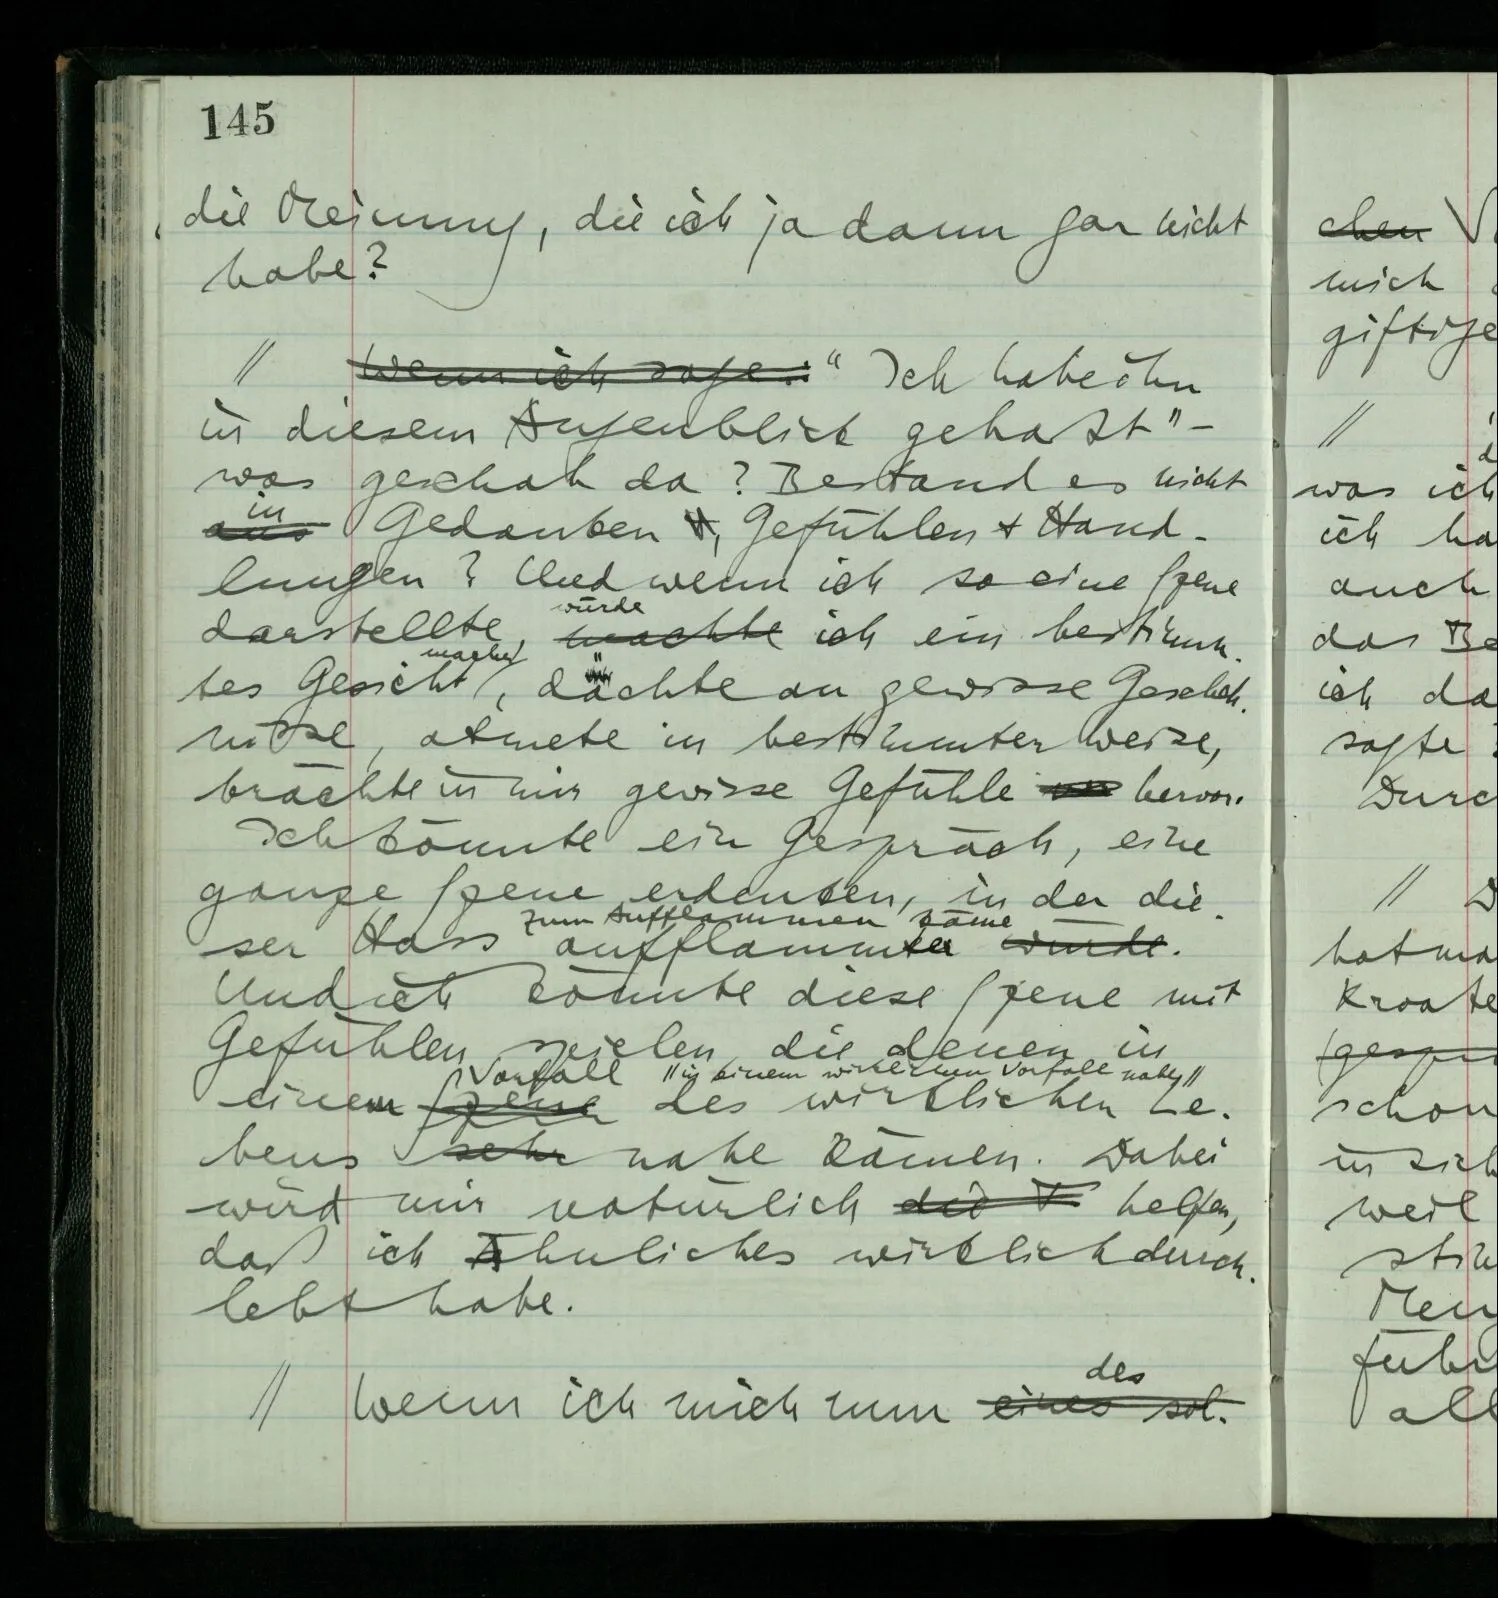 145
die Meinung, die ich ja dann gar nicht
habe?
// Wenn ich sage: “ Ich habe ihn
in diesem Augenblick gehaßt” –
was geschah da? Bestand es nicht
in
aus Gedanken, Gefühlen + Hand-
lungen? Und wenn ich so eine Szene
würde
darstellte, machte ich ein bestimm-
machen
tes Gesicht, dächte an gewisse Gescheh-
nisse, atmete in bestimmter Weise,
brächte in mir gewisse Gefühle hervor.
Ich könnte ein Gespräch, eine
ganze Szene erdenken, in der die-
zum Aufflammen käme
ser Hass aufflammen würde.
Und ich könnte diese Szene mit
Gefühlen spielen, die denen in
Vorfall // in einem wirklichen Vorfall nahe //
einem Szene des wirklichen Le-
bens sehr nahe kämen. Dabei
wird mir natürlich die helfen,
daß ich Ähnliches wirklich durch-
lebt habe.
des
// Wenn ich mich nun eines sol-
chen
mich
giftige
//
was ich
ich ha
auch
das Be
ich da
sagte
Durc
//
hat ma
Kroate
gespr
schon
in sich
weil
stim
Men
führ
all